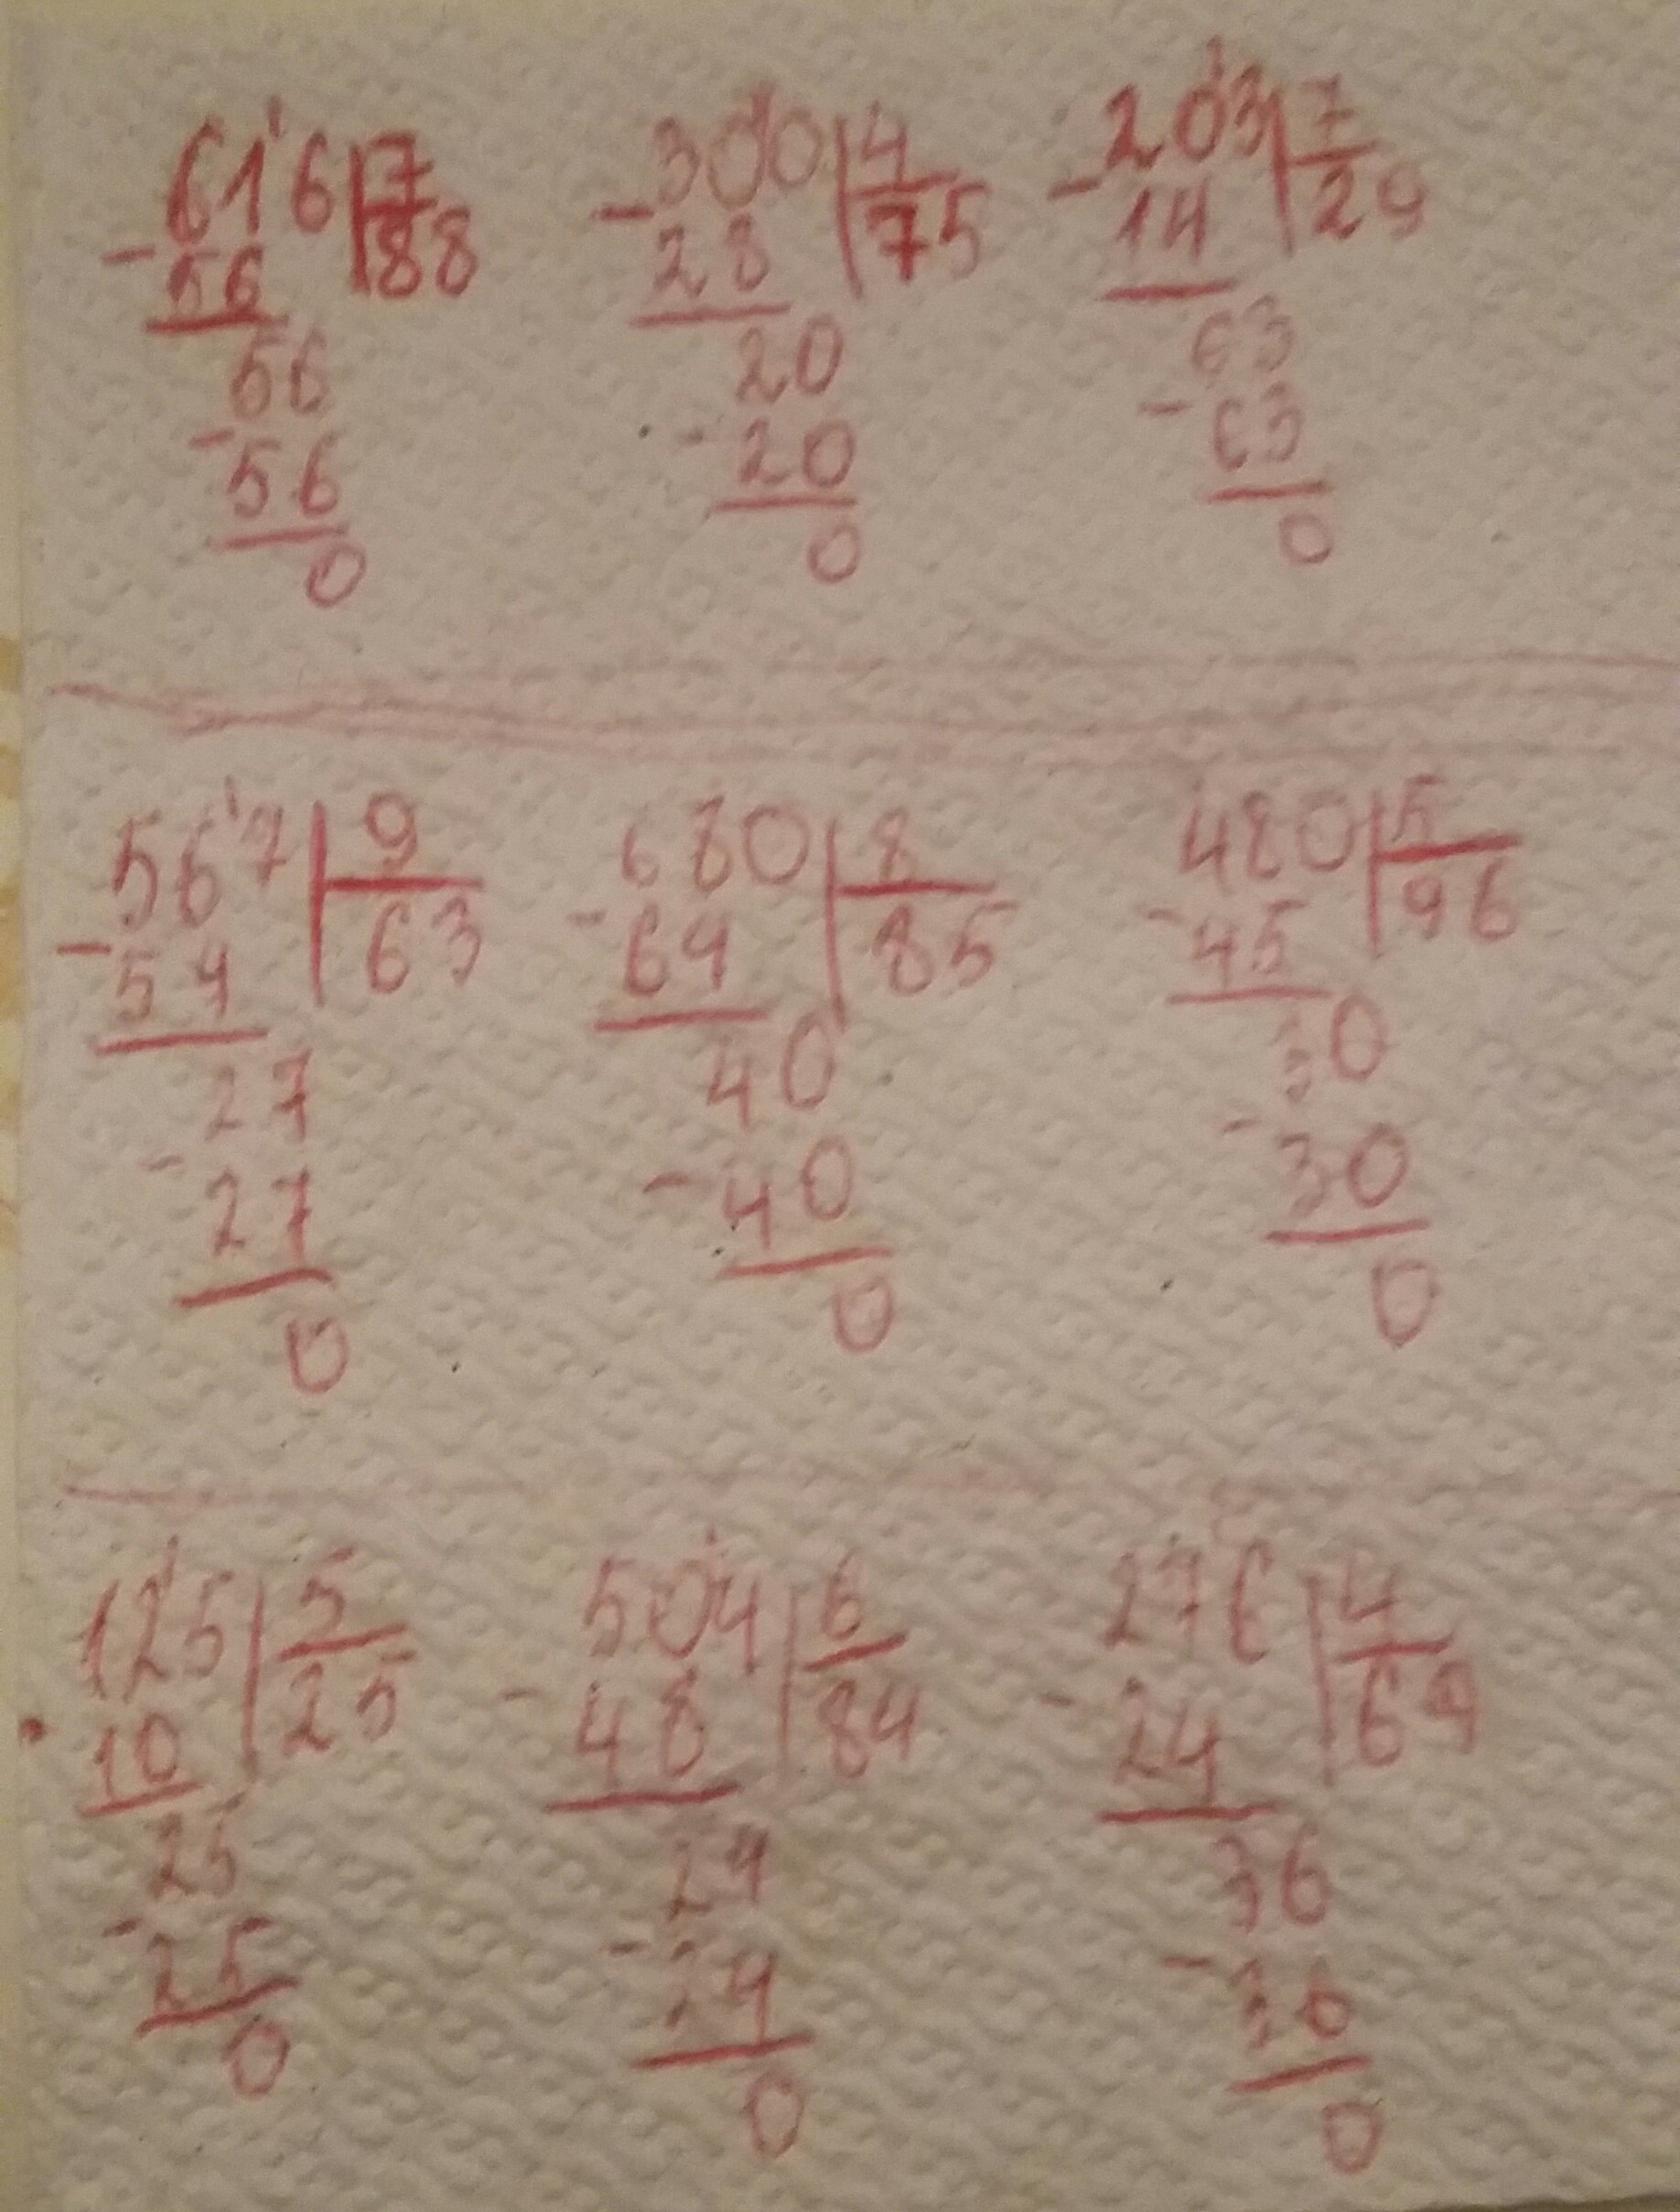 616 7 300 4 203 7
- 56 88 - 28 75 - 14 29
56 20 63
- 56 - 20 - 63
0 0 0
567 9 680 8 480 5
- 54 63 - 64 85 - 45 96
27 40 30
- 27 - 40 - 30
0 0 0
125 5 504 6 276 4
- 10 25 - 48 84 - 24 69
25 24 36
- 25 - 24 - 36
0 0 0